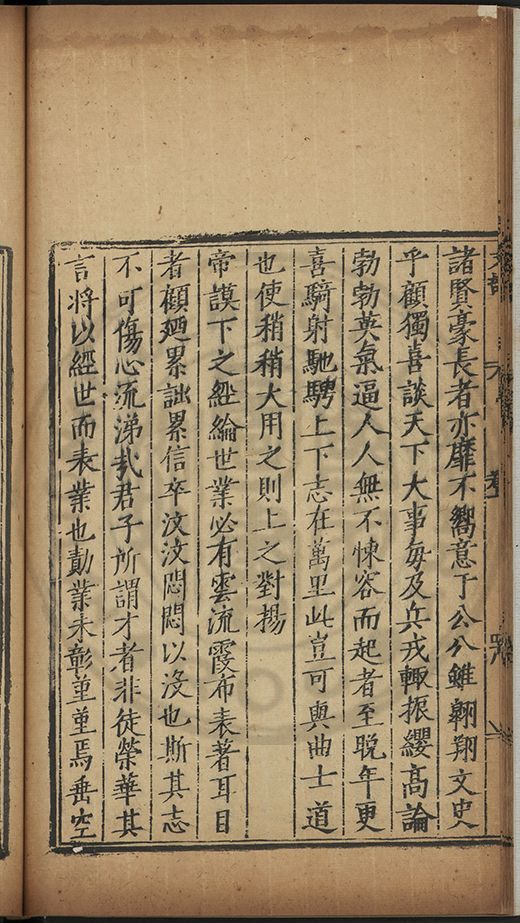 諸賢豪長者亦靡不嚮意于公公雖翱翔文史
乎顧獨喜談天下大事每及兵戎輙振纓高論
勃勃英氣逼人人無不悚容而起者至晚年更
喜騎射馳騁上下志在萬里此豈可與曲士道
也使稍稍大用之則上之對揚
帝謨下之經綸世業必有雲流霞布表著耳目
者顧廼累詘累信卒汶汶悶悶以沒也斯其志
不可傷心流涕哉君子所謂才者非徒榮華其
言將以經世而表業也勛業未彰堇堇焉垂空